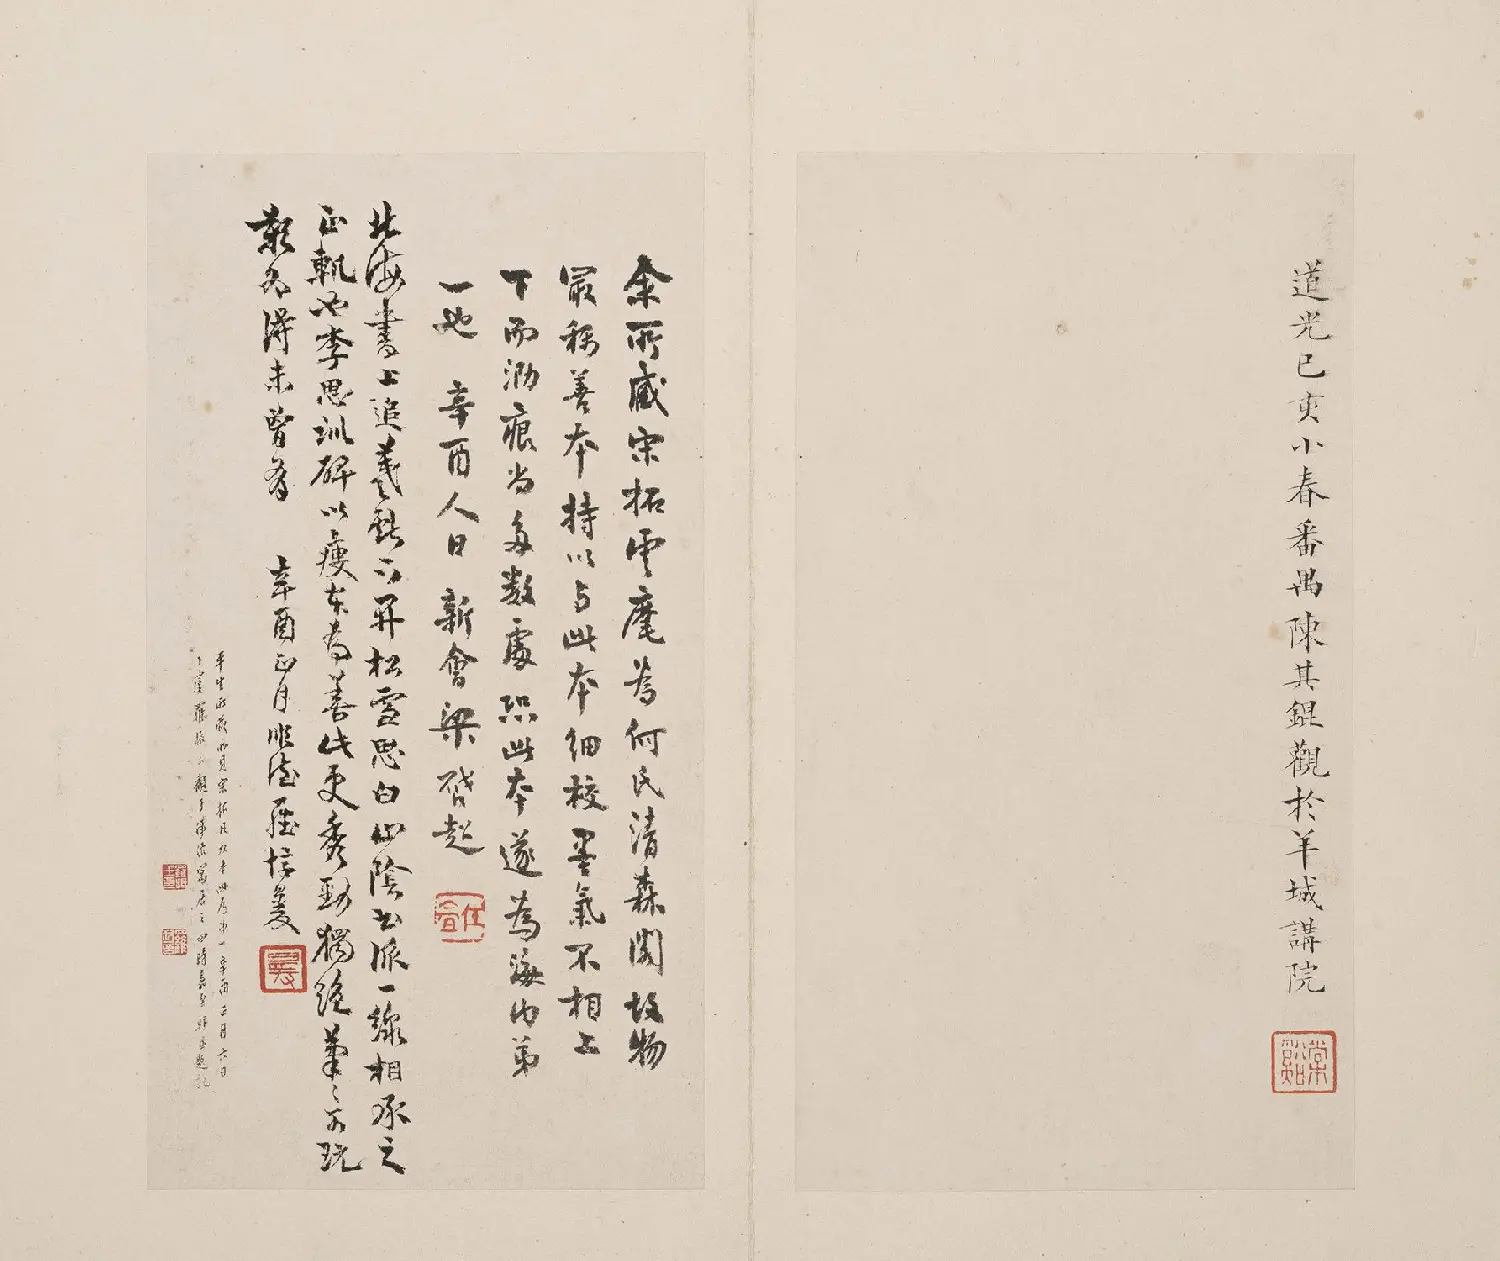 道光己亥小春番禺陳其錕觀於羊城講院
棠谿
余所藏宋拓雲麾為何氏清森閣故物
最稱善本持以与此本細校墨氣不相上
下而泐痕尚多數處恐此本遂為海內弟
一也 辛酉人日 新會梁啓超
北海書上追羲獻下開松雪思白山陰書脈一線相承之
正軌也李思訓碑以瘦本為善此更秀勁獨絕筆〻可玩
歎為得未曾有 辛酉正月順德羅惇㬊
平生所藏所見宋拓 此 第一辛酉正月六日